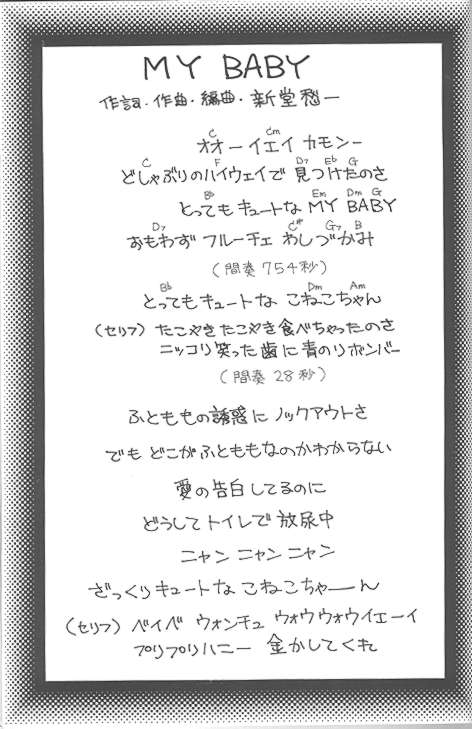 MY BABY
作詞・作曲・編曲・新堂愁一
C Cm
オオーイエイ カモンー
C F D7 Eb G
どしゃぶりのハイウェイで 見つけたのさ
Bb Em Dm G
とってもキュートな MY BABY
D7 C# G7 B
おもわず フルーチェ わしづかみ
(間奏 754秒)
Bb Dm Am
とってもキュートな こねこちゃん
(セリフ) たこやきたこやき食べちゃったのさ
ニッコリ笑った歯に青のりボンバー
(間奏 28秒)
ふとももの誘惑に ノックアウトさ
でも どこがふとももなのかわからない
愛の告白してるのに
どうしてトイレで 放尿中
ニャン ニャン ニャン
ざっくりキュートな こねこちゃーん
(セリフ) ベイベ ウォンチュ ウォウウォウイエーイ
プリプリハニー 金かしてくれ